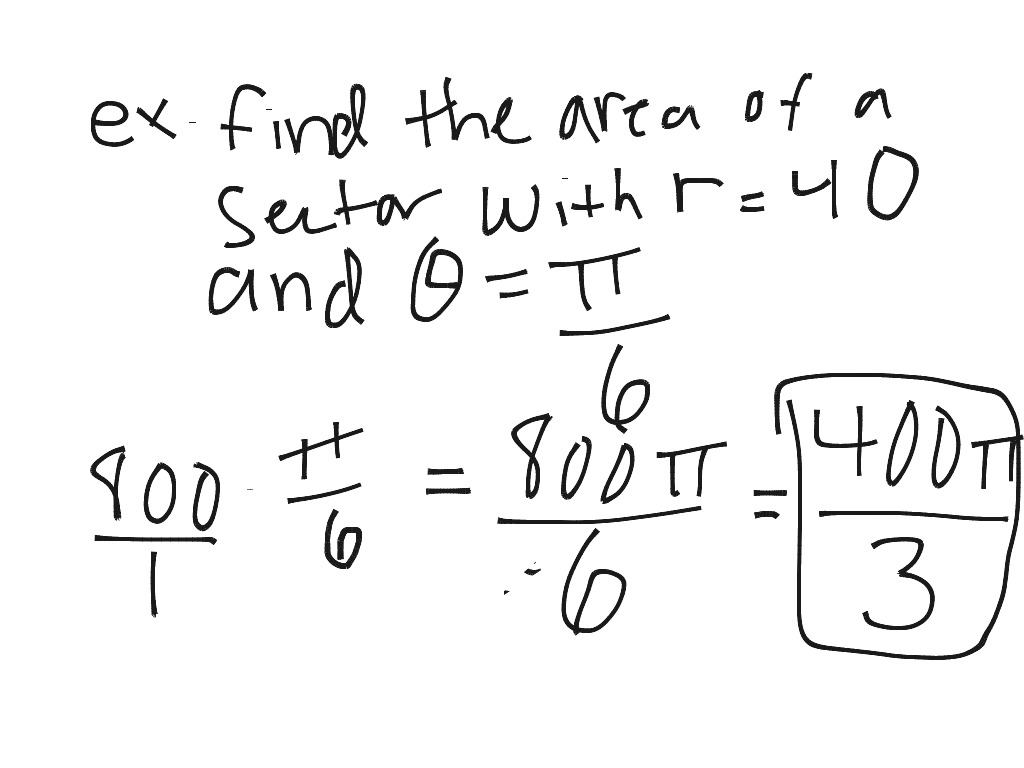 ex. find the area of a
sector with r = 40
and θ = π/6
800/1 · π/6 = 800π/6 = 400π/3